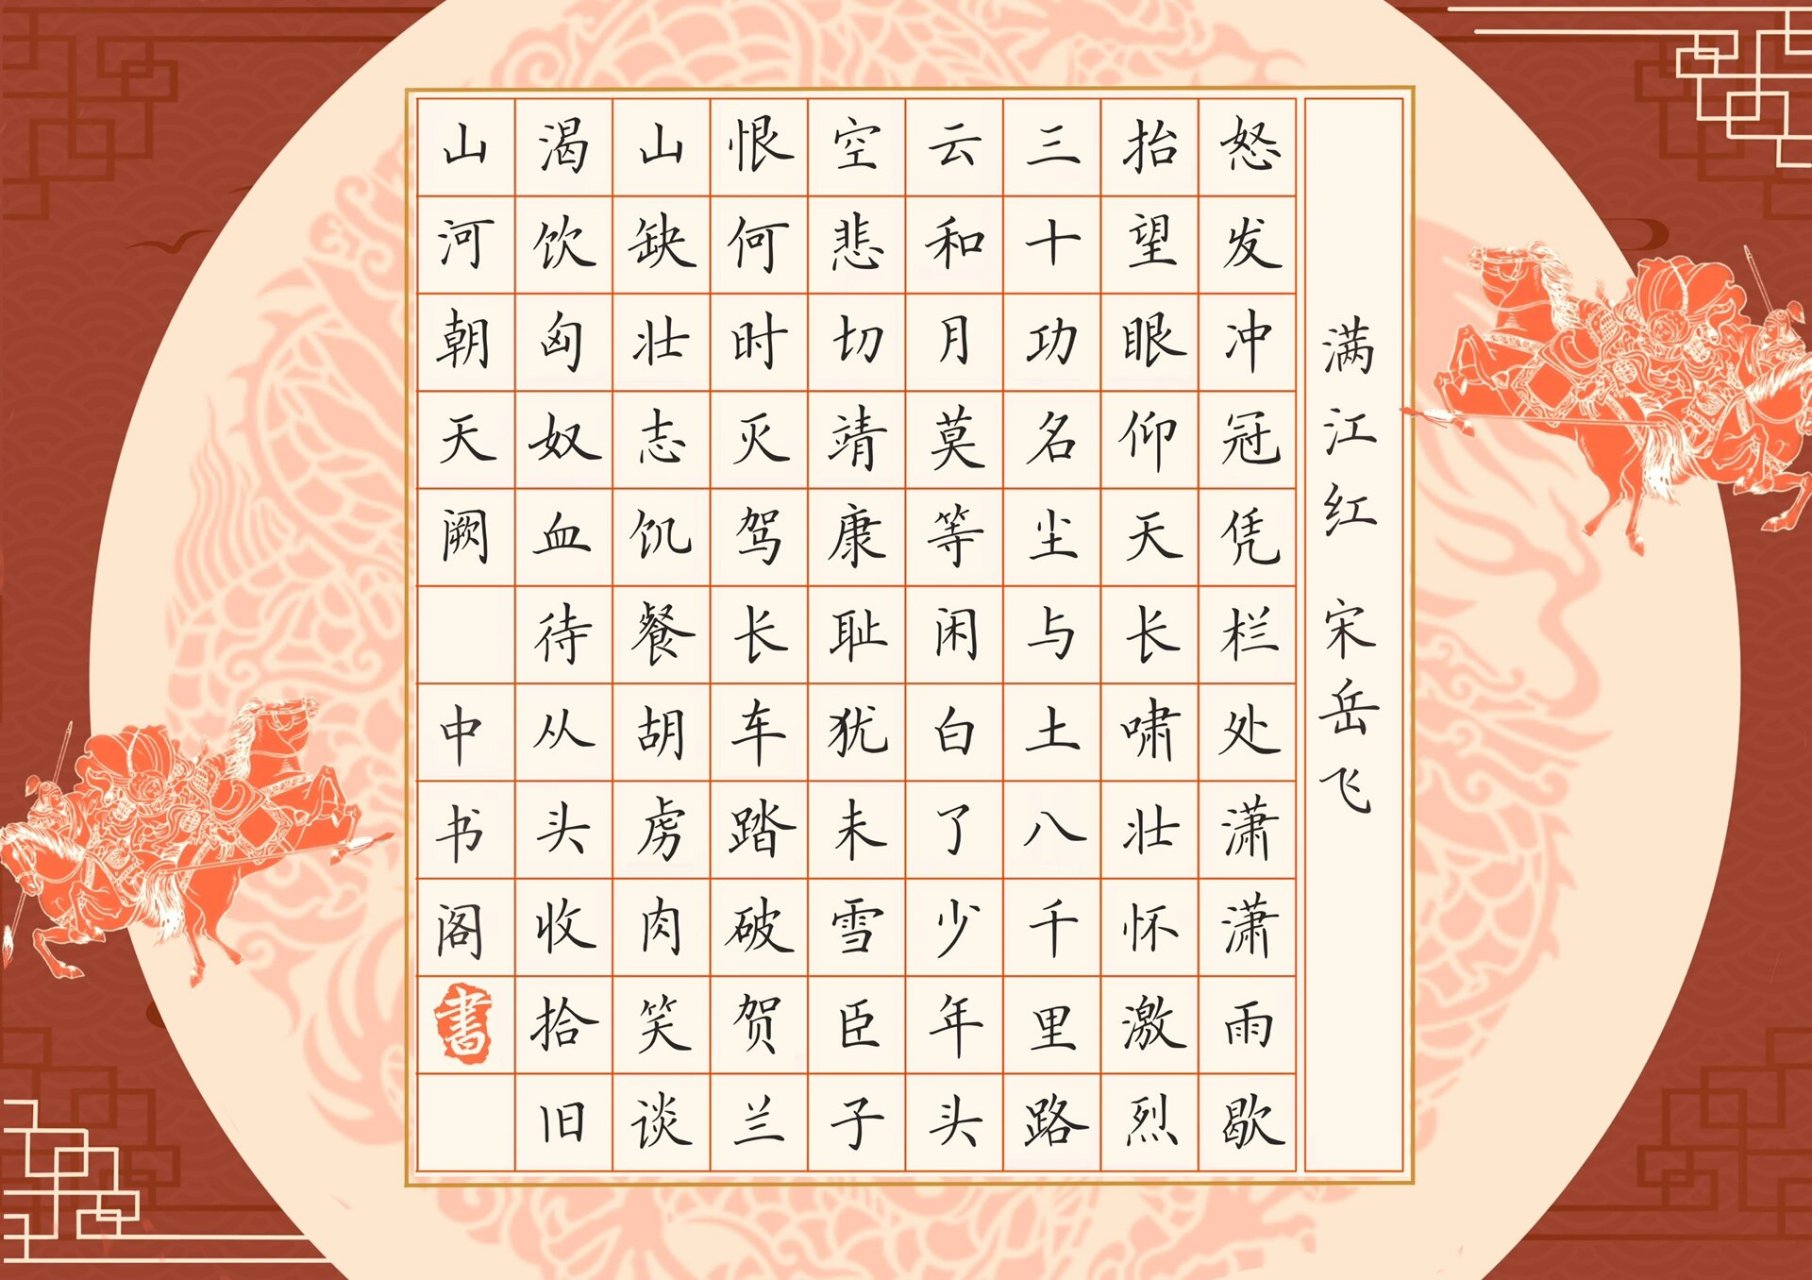 满江红 宋 岳飞
怒发冲冠凭栏处潇潇雨歇
抬望眼仰天长啸壮怀激烈
三十功名尘与土八千里路
云和月莫等闲白了少年头
空悲切靖康耻犹未雪臣子
恨何时灭驾长车踏破贺兰
山缺壮志饥餐胡虏肉笑谈
渴饮匈奴血待从头收拾旧
山河朝天阙 中书阁
書